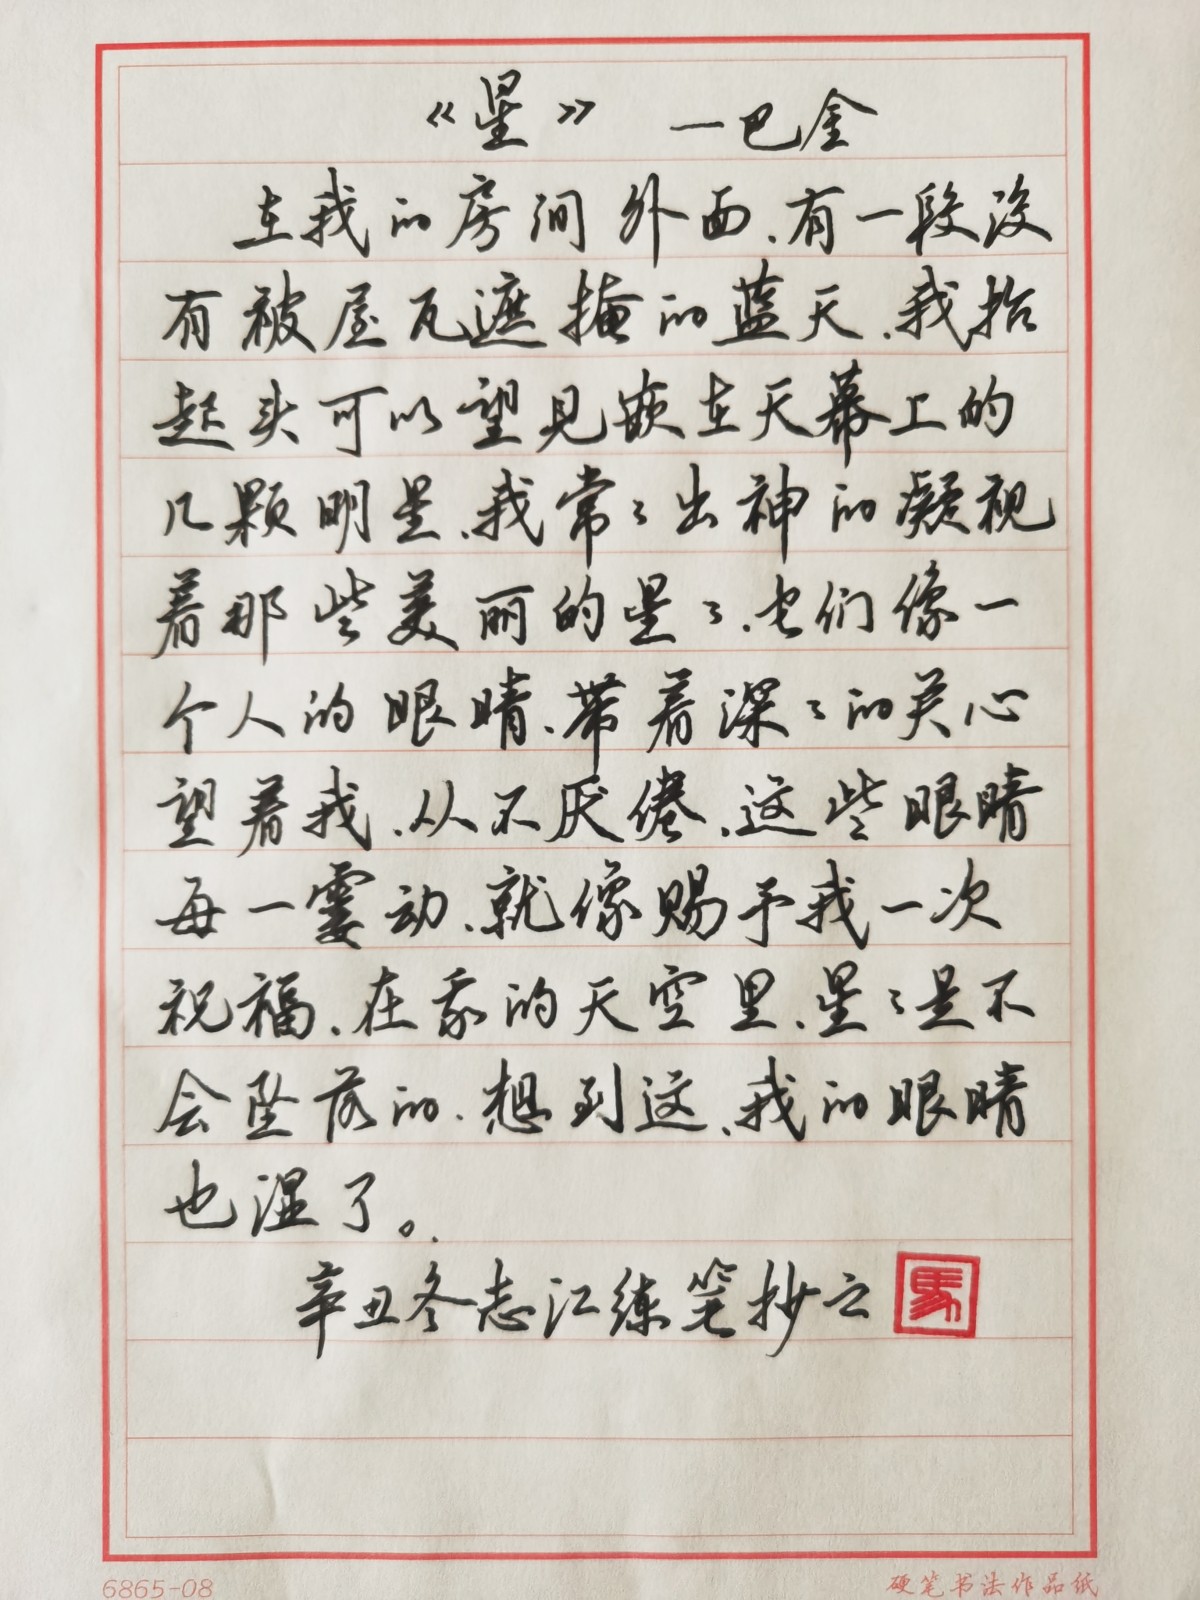 《星》 一巴金
在我的房间外面、有一段没
有被屋瓦遮掩的蓝天、我抬
起头可以望见嵌在天幕上的
几颗明星、我常〻出神的凝视
着那些美丽的星〻、它们像一
个人的眼睛、带着深〻的关心
望着我、从不厌倦、这些眼睛
每一霎动、就像赐予我一次
祝福、在我的天空里、星〻是不
会坠落的、想到这、我的眼睛
也湿了。
辛丑冬志江练笔抄之
馬
6865-08
硬笔书法作品纸